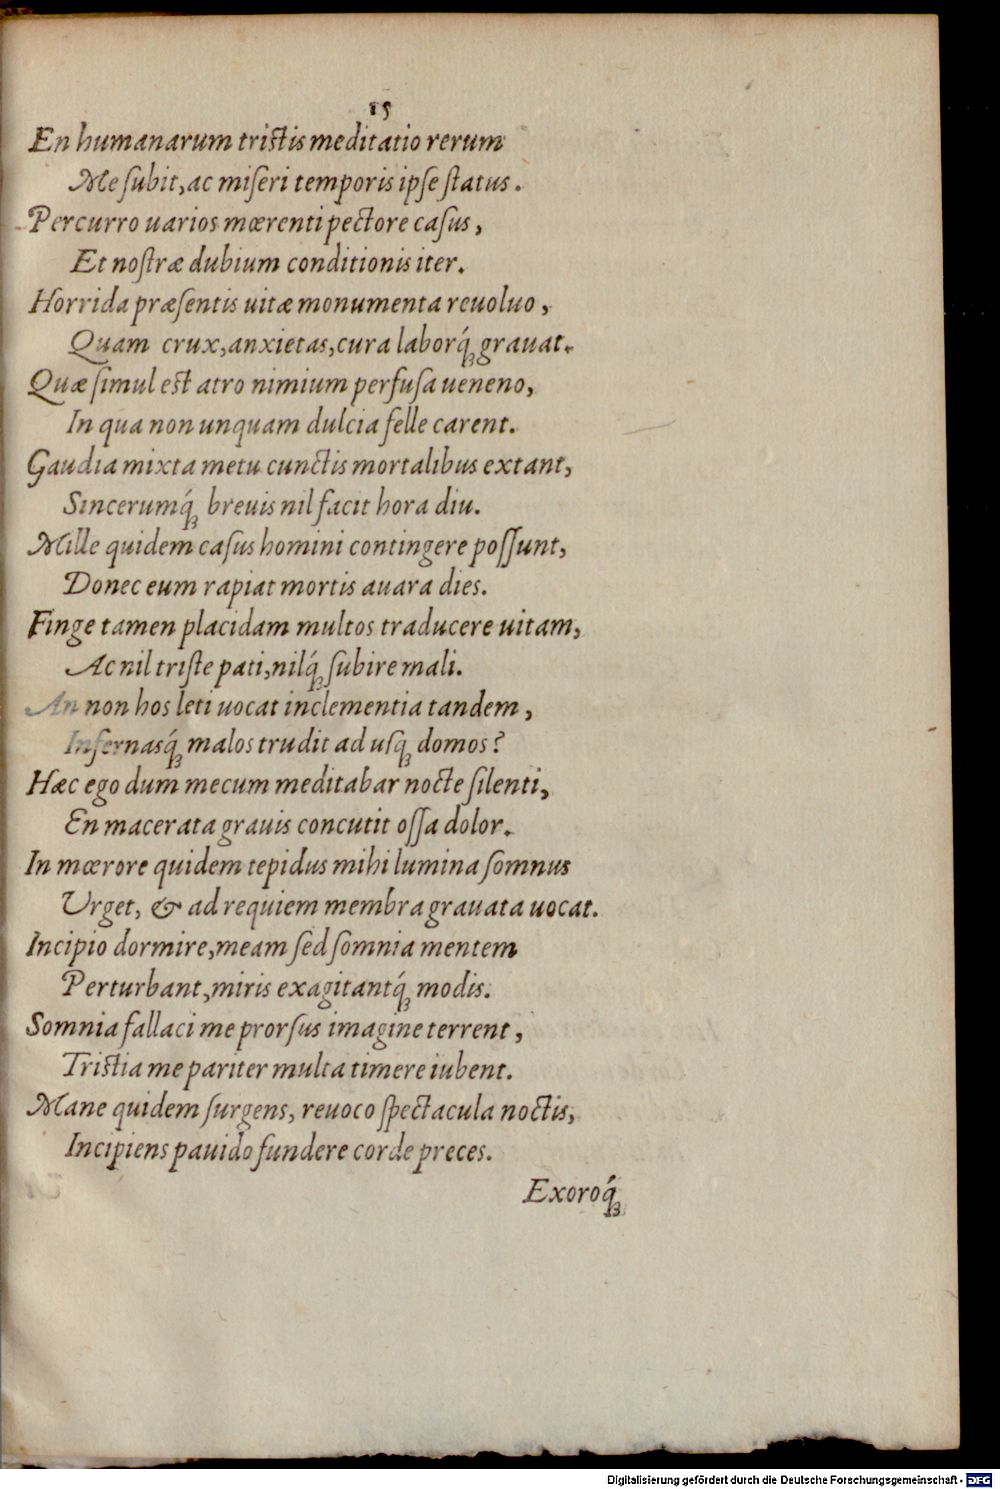 15
En humanarum tristis meditatio rerum
Me subit, ac miseri temporis ipse status.
Percurro uarios mœrenti pectore casus,
Et nostræ dubium conditionis iter.
Horrida præsentis uitæ monumenta reuoluo,
Quam crux, anxietas, cura laborq́ꝫ grauat.
Quæ simul est atro nimium perfusa ueneno,
In qua non unquam dulcia felle carent.
Gaudia mixta metu cunctis mortalibus extant,
Sincerumq́ꝫ breuis nil facit hora diu.
Mille quidem casus homini contingere possunt,
Donec eum rapiat mortis auara dies.
Finge tamen placidam multos traducere uitam,
Ac nil triste pati, nilq́ꝫ subire mali.
An non hos leti uocat inclementia tandem,
Infernasq́ꝫ malos trudit ad usqꝫ domos?
Hæc ego dum mecum meditabar nocte silenti,
En macerata grauis concutit ossa dolor.
In mœrore quidem tepidus mihi lumina somnus
Urget, & ad requiem membra grauata uocat.
Incipio dormire, meam sed somnia mentem
Perturbant, miris exagitantq́ꝫ modis.
Somnia fallaci me prorsus imagine terrent,
Tristia me pariter multa timere iubent.
Mane quidem surgens, reuoco spectacula noctis,
Incipiens pauido fundere corde preces.
Exoroq́ꝫ
Digitalisierung gefördert durch die Deutsche Forschungsgemeinschaft - DFG